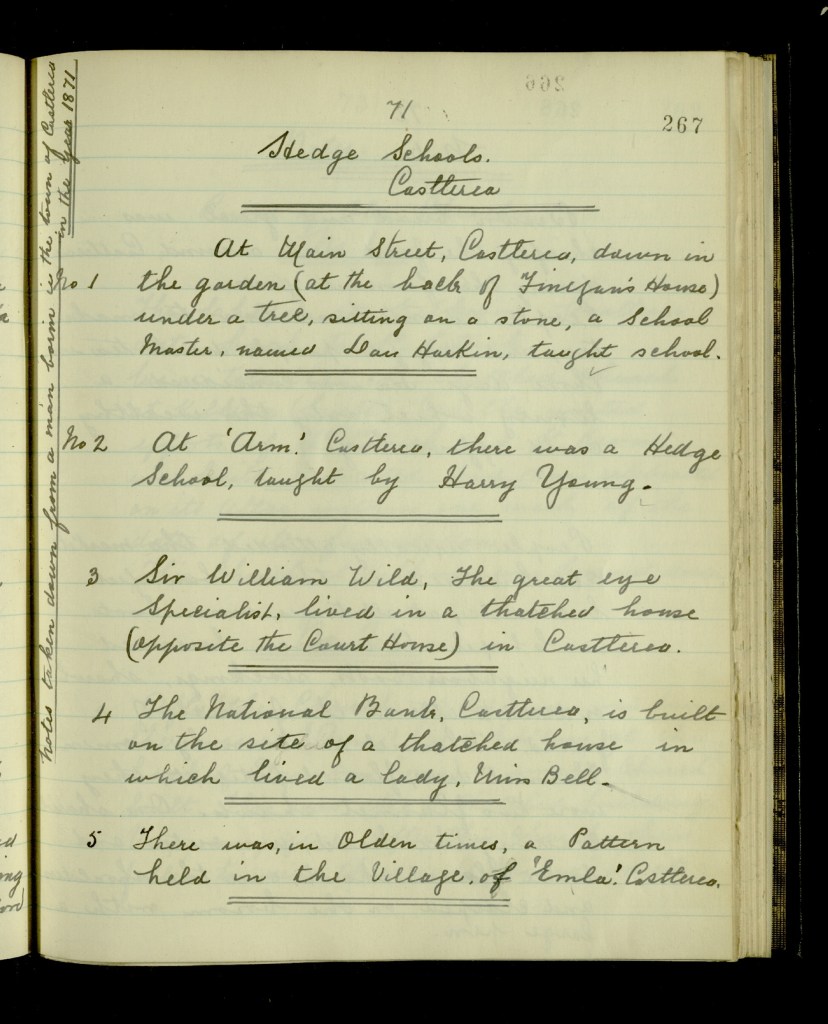 71
267
Hedge Schools.
Castlerea
At Main Street, Castlerea, down in
No 1 the garden (at the back of Finegan's House)
under a tree, sitting on a stone, a School
Master, named Dan Harkin, taught school.
No 2 At 'Arm'. Castlerea, there was a Hedge
School, taught by Harry Young.
3 Sir William Wild, The great eye
Specialist, lived in a thatched house
(opposite the Court House) in Castlerea.
4 The National Bank, Castlerea, is built
on the site of a thatched house in
which lived a lady, Miss Bell.
5 There was, in Olden times, a Pattern
held in the Village. of 'Emla'. Castlerea.
Notes taken down from a man borin in the town of Castlerea
in the Year 1871